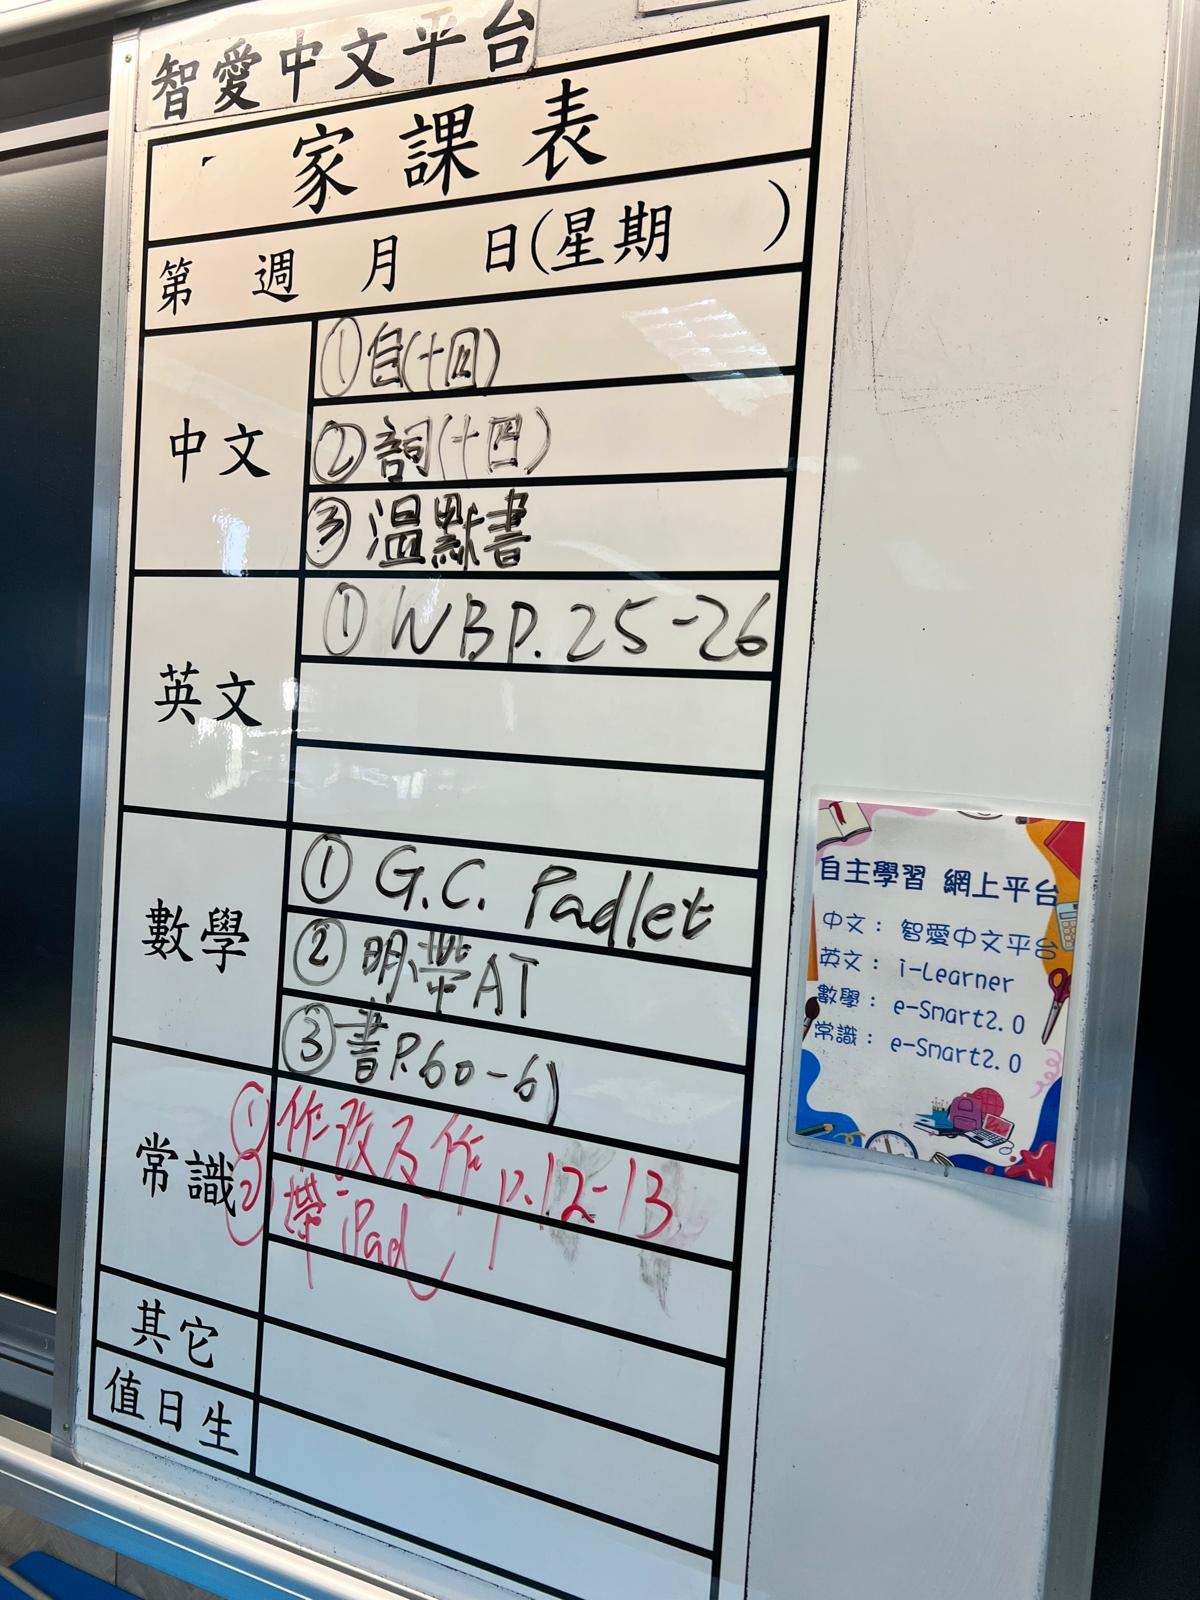 智愛中文平台
家課表
第 週 月 日(星期 )
中文
①自(十四)
②詞(十四)
③溫默書
英文
① WB P. 25-26
數學
① G.C. Padlet
②明帶AT
③書P.60-61
常識
①作改及作 p.12-13
②帶iPad
其它
值日生
自主學習 網上平台
中文： 智愛中文平台
英文： i-Learner
數學： e-Smart2.0
常識： e-Smart2.0